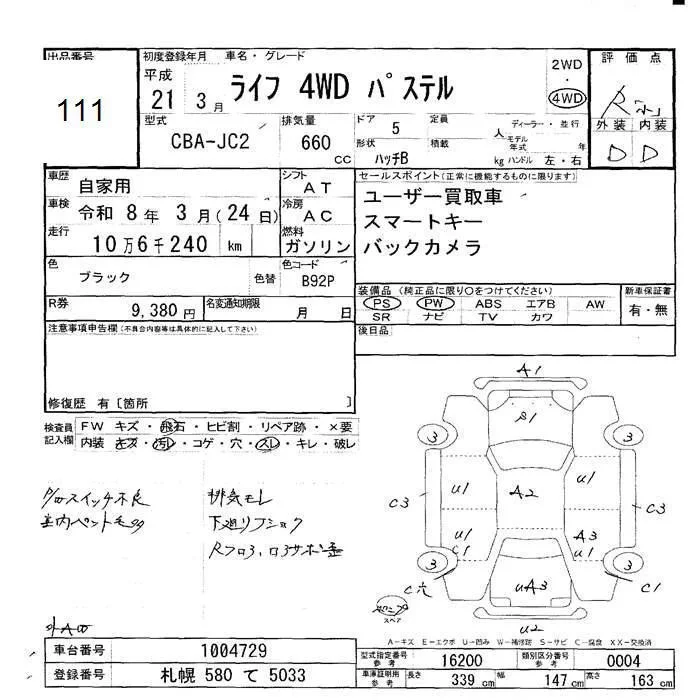 出品番号
111
初度登録年月 車名・グレード
平成 21 3月 ライフ 4WD パステル
2WD
・
4WD
評価点
R
外装 内装
D D
型式
CBA-JC2
排気量
660 cc
ドア 5
定員 人
ディーラー・並行
モデル年式 年
形状 ハッチB
積載 kg
ハンドル 左・右
車歴 自家用
シフト AT
車検 令和 8年 3月(24日)
冷房 AC
走行 10万6千240 km
燃料 ガソリン
色 ブラック 色替
色コード B92P
R券 9,380円
名変通知期限 月 日
セールスポイント(正常に機能するものに限ります)
ユーザー買取車
スマートキー
バックカメラ
装備品(純正品に限り○をつけてください)
PS PW ABS エアB AW
SR ナビ TV カワ
新車保証書
有・無
後日品
注意事項申告欄(不具合内容等は具体的に記入して下さい)
修復歴 有〔箇所 〕
検査員記入欄
FW キズ・飛石・ヒビ割・リペア跡・×要
内装 キズ・汚レ・コゲ・穴・スレ・キレ・破レ
P/Wスイッチ不良
室内ペット毛
排気モレ
下廻りフショク
A1
S1
3 3
U1 U1
A2
C3 C3
U1
C1
A3
U1
3 3
UA3
C穴 C1
スペア
U2
A-キズ E-エクボ U-凹み W-補修跡 S-サビ C-腐食 XX-交換済
車台番号 1004729
登録番号 札幌 580 て 5033
型式指定番号 参考 16200
類別区分番号 参考 0004
車庫証明用 参考 長さ 339 cm 幅 147 cm 高さ 163 cm